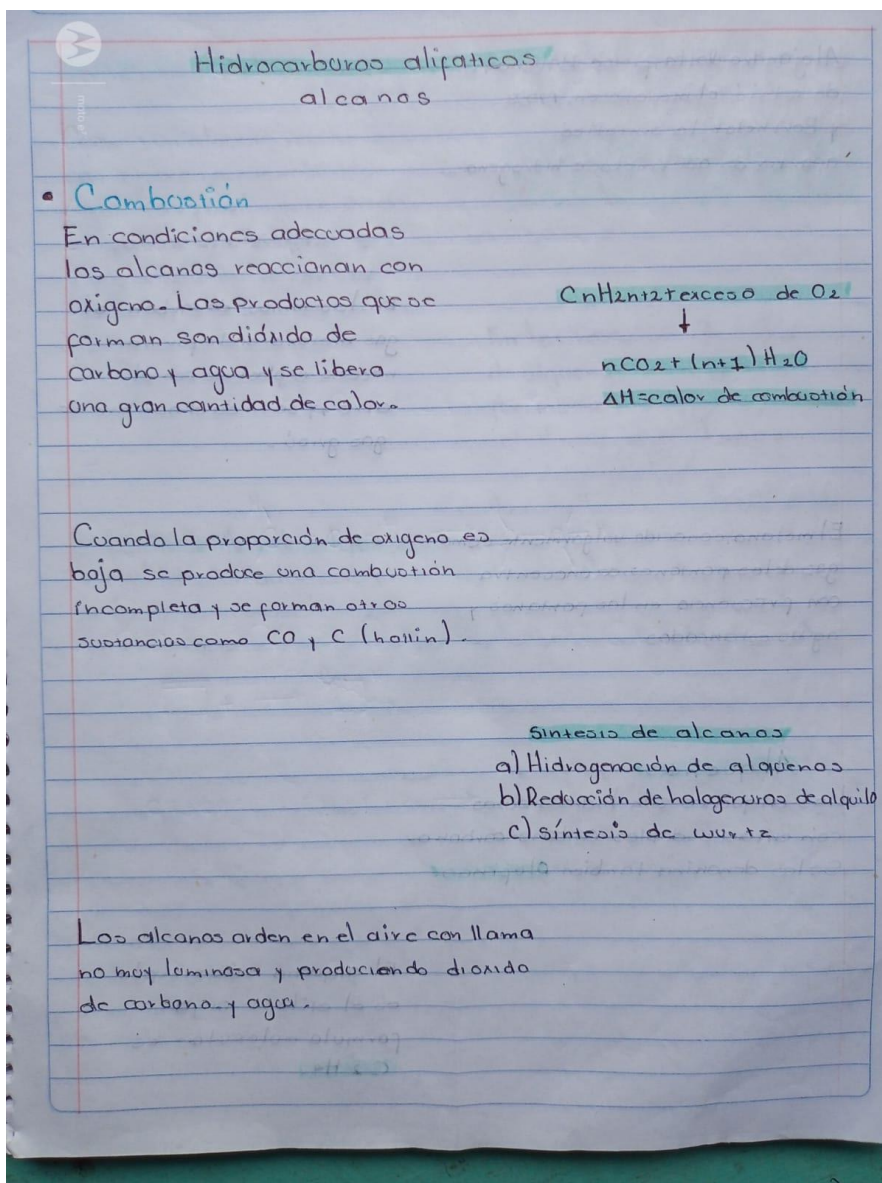 Hidrocarburos alifaticos
alcanos
• Combustión
En condiciones adecuadas
los alcanos reaccionan con
oxigeno. Los productos que se
forman son dióxido de
carbono y agua y se libera
una gran caintidad de calor.
CnH2n+2+exceso de O2
↓
nCO2+(n+1)H2O
ΔH=calor de combustión
Cuando la proporción de oxigeno es
baja se produce una combustión
incompleta y se forman otras
sustancias como CO y C (hollin).
Sintesis de alcanos
a) Hidrogenación de alquenos
b) Reducción de halogenuros de alquilo
c) síntesis de wurtz
Los alcanos arden en el aire con llama
no muy luminosa y produciendo dioxido
de carbono y agua.